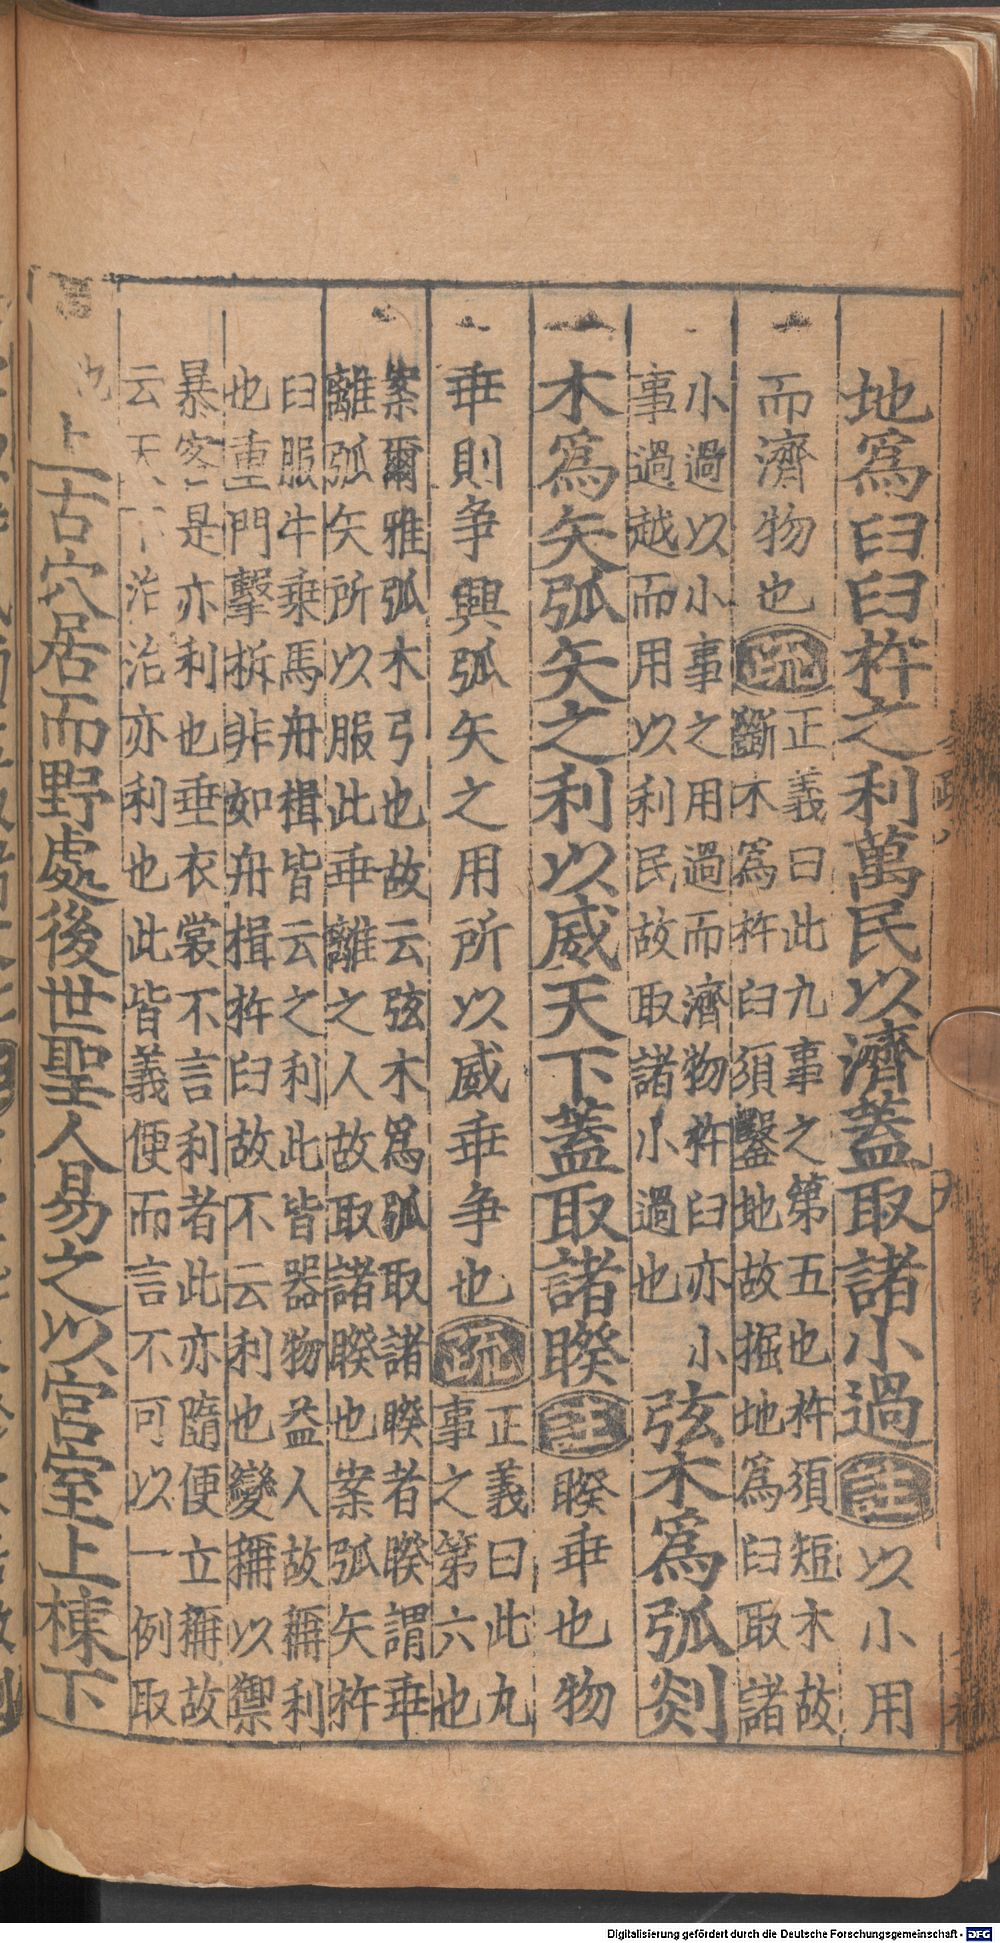 地爲臼臼杵之利萬民以濟蓋取諸小過註以小用
而濟物也疏正義曰此九事之第五也杵須短木故
斷木爲杵臼須鑿地故掘地爲臼取諸
小過以小事之用過而濟物杵臼亦小
事過越而用以利民故取諸小過也
弦木爲弧剡
木爲矢弧矢之利以威天下蓋取諸睽註睽乖也物
乖則争興弧矢之用所以威乖争也疏正義曰此九
事之第六也
案爾雅弧木弓也故云弦木爲弧取諸睽者睽謂乖
離弧矢所以服此乖離之人故取諸睽也案弧矢杵
臼服牛乗馬舟楫皆云之利此皆器物益人故稱利
也重門擊柝非如舟楫杵臼故不云利也變稱以禦
暴客是亦利也垂衣裳不言利者此亦隨便立稱故
云天下治治亦利也此皆義便而言不可以一例取
也上古穴居而野處後世聖人易之以宮室上棟下
Digitalisierung gefördert durch die Deutsche Forschungsgemeinschaft - DFG